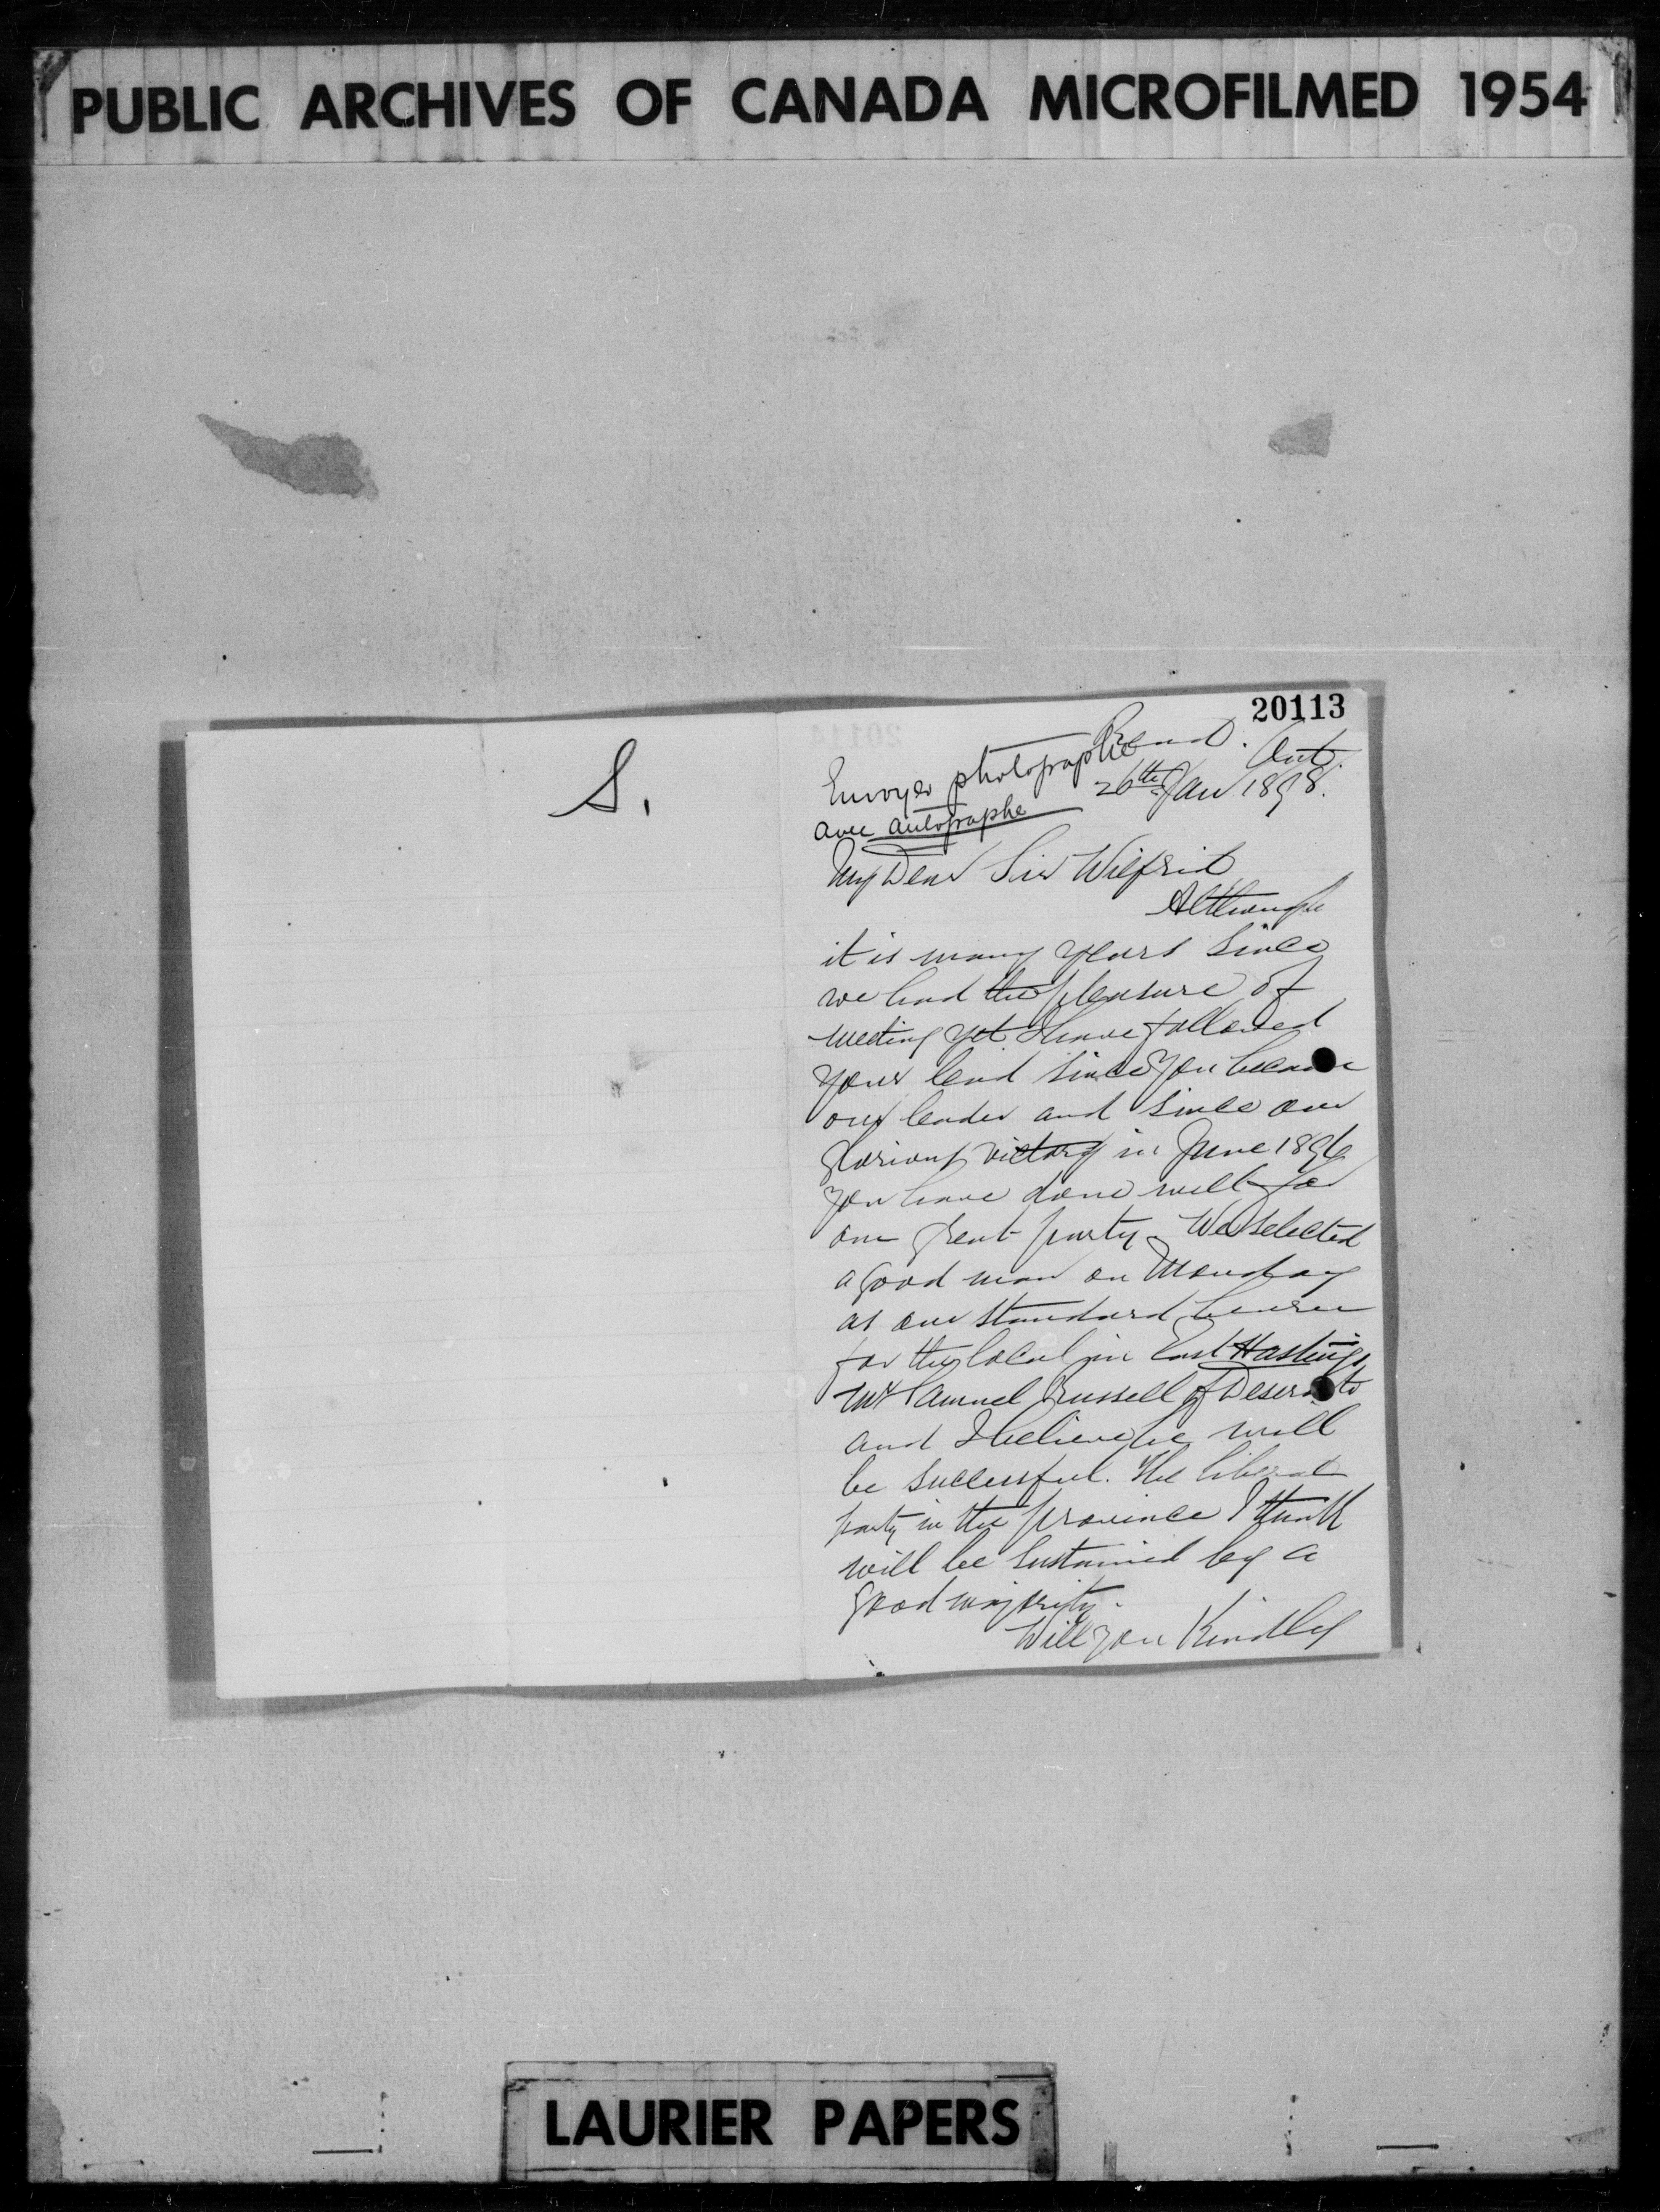 PUBLIC ARCHIVES OF CANADA MICROFILMED 1954
20113
S.
Read. Ont.
26th Jan 1898.
Envoyer photographie
avec autographe
My Dear Sir Wilfrid
Although
it is many years since
we had the pleasure of
meeting yet I have followed
your lead since you became
our leader and since our
glorious victory in June 1896
you have done well for
our great party. We selected
a good man on Monday
as our standard bearer
for the local in East Hastings
Mr Samuel Russell of Deseronto
and I believe he will
be successful. The liberal
party in the province I think
will be sustained by a
good majority.
Will you Kindly
LAURIER PAPERS